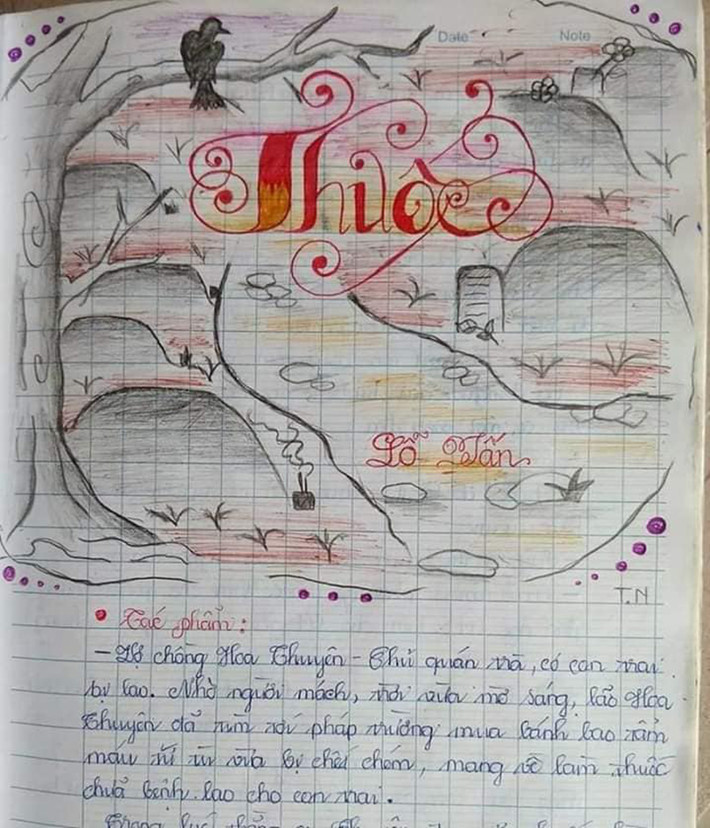 Date
Note
Thuốc
Lỗ Tấn
T.N
• Tác phẩm:
- Vợ chồng Hoa Thuyên - Chủ quán trà, có con trai
bị lao. Nhờ người mách, trời vừa mờ sáng, lão Hoa
Thuyên đã tìm tới pháp trường mua bánh bao tẩm
máu tử tù vừa bị chết chém, mang về làm thuốc
chữa bệnh lao cho con trai.